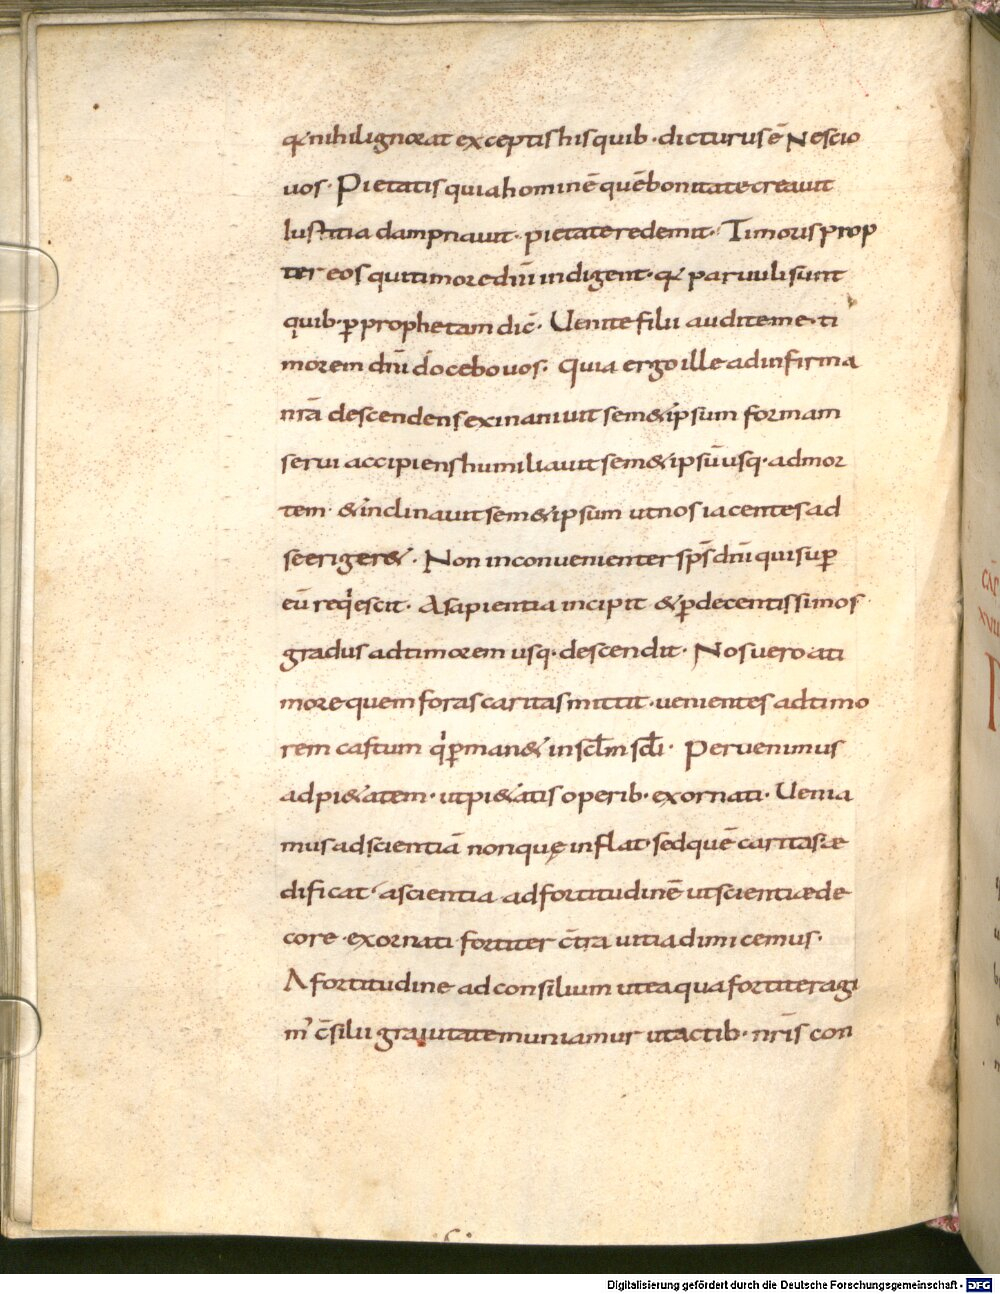 qđ nihil ignorat exceptis his quib· dicturus ē Nescio
uos· Pietatis quia hominē quē bonitate creauit
Iustitia dampnauit· pietate redemit· Timoris prop
ter eos qui timore dn̄i indigent· qđ paruuli sunt
quib· ꝑ prophetam dic̄· Uenite filii audite me· ti
morem dn̄i docebo uos· Quia ergo ille ad infirma
nr̄a descendens exinaniuit sem&ipsum formam
serui accipiens humiliauit sem&ipsū usq· ad mor
tem· & inclinauit sem&ipsum ut nos iacentes ad
se eriger&· Non inconuenienter sp̄s dn̄i qui suꝑ
eū reqiescit· A sapientia incipit & ꝑ decentissimos
gradus ad timorem usq· descendit· Nos uero a ti
more quem foras caritas mittit· uenientes ad timo
rem castum qi ꝑman& in sclm scli· Peruenimus
ad pi&atem· ut pi&atis operib· exornati· Uenia
mus ad scientiā non quę inflat· sed quē caritas æ
dificat· a scientia ad fortitudinē ut scientiæ de
core· exornati fortiter c̄tra uitia dimicemus·
A fortitudine ad consilium ut ea qua fortiter agi
m' c̄silii grauitate muniamur ut actib· nr̄is con
Digitalisierung gefördert durch die Deutsche Forschungsgemeinschaft - DFG